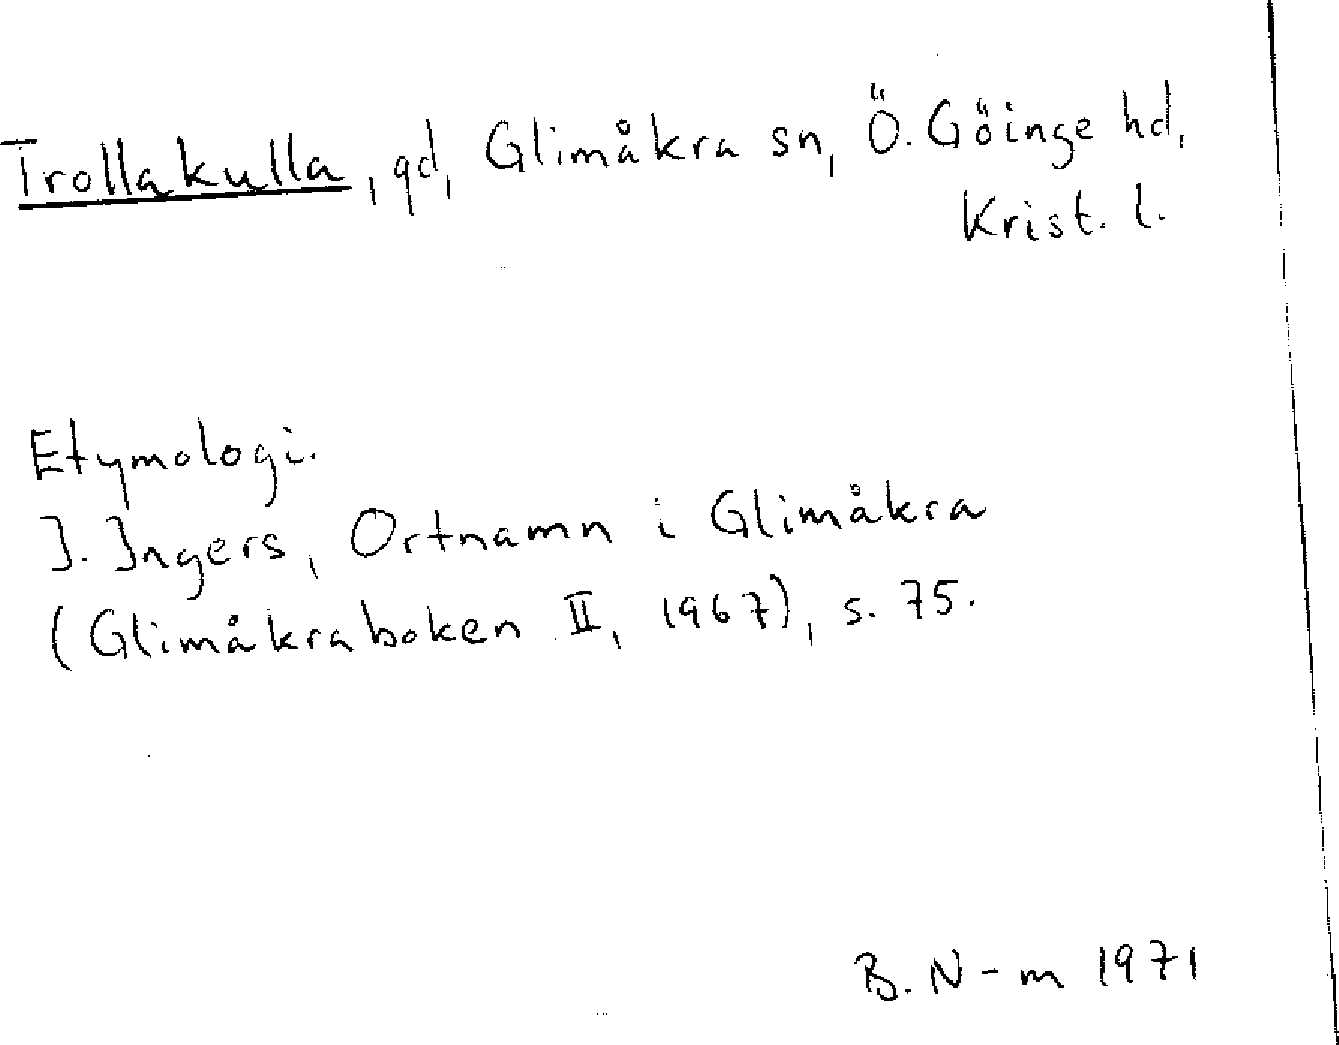 Trollakulla, gd, Glimåkra sn, Ö. Göinge hd,
Krist. l.
Etymologi.
I. Ingers, Ortnamn i Glimåkra
(Glimåkraboken II, 1967), s. 75.
B. N-m 1971